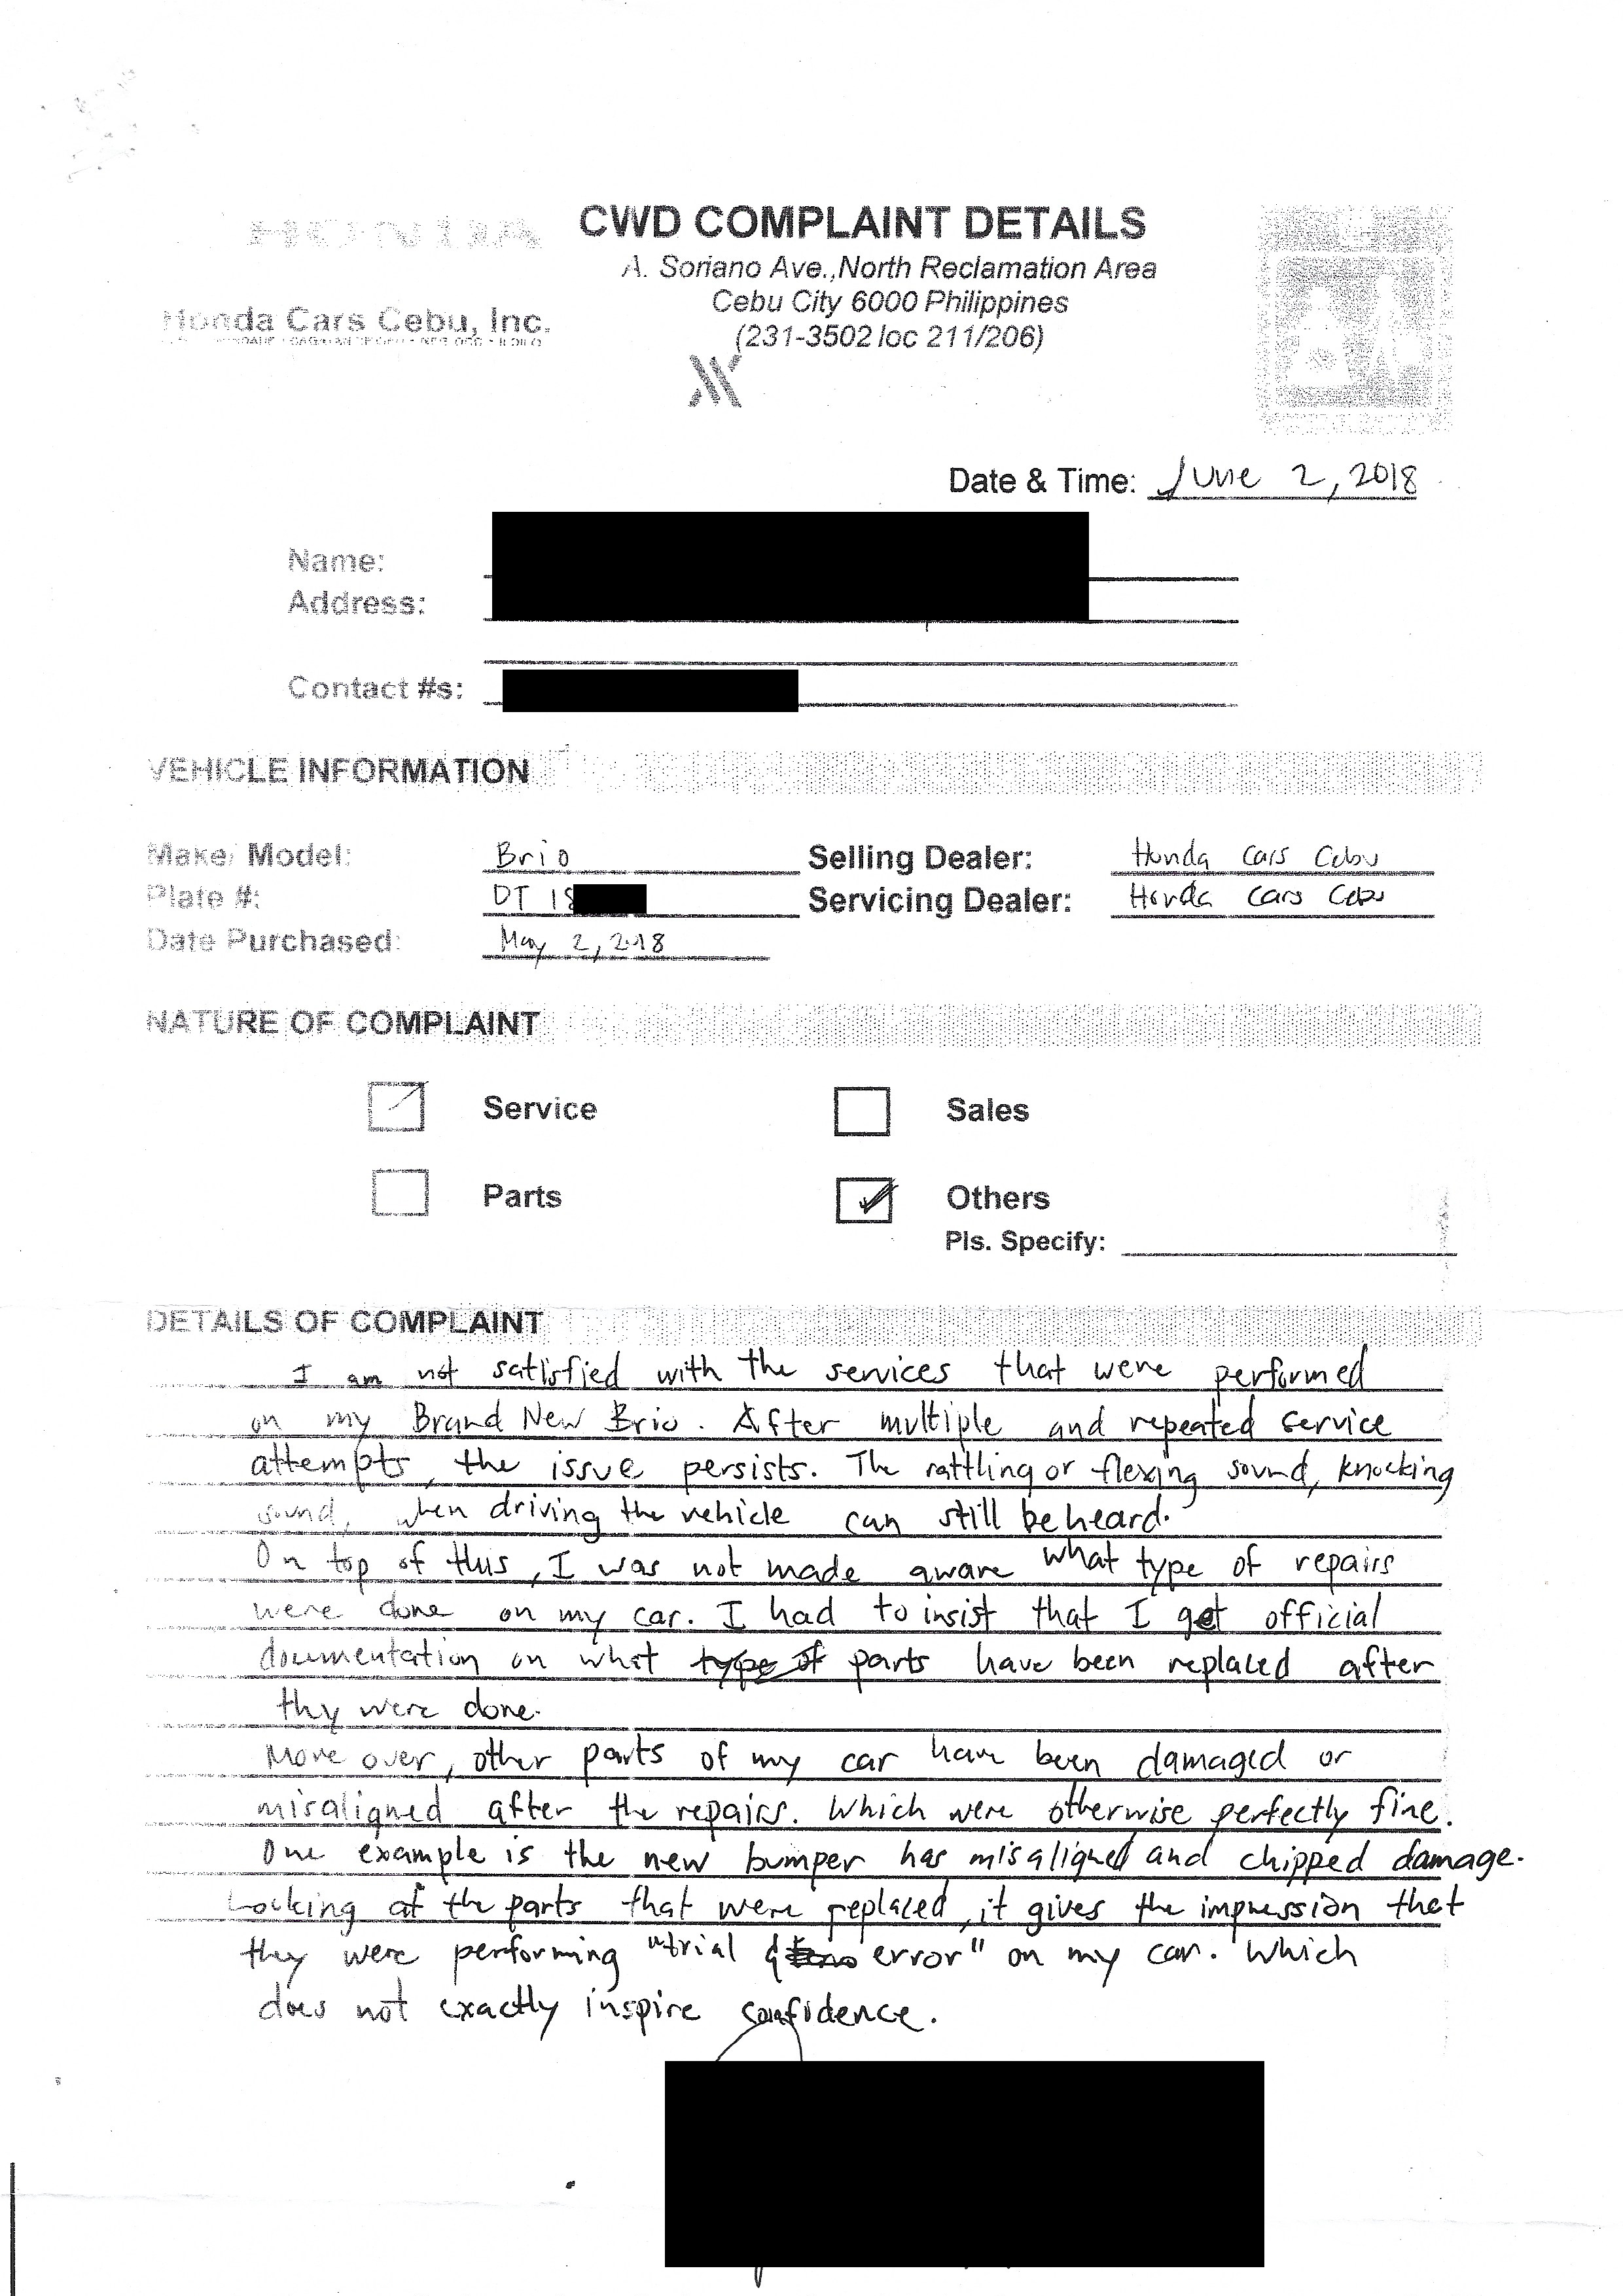 HONDA
CWD COMPLAINT DETAILS
A. Soriano Ave.,North Reclamation Area
Cebu City 6000 Philippines
(231-3502 loc 211/206)
Honda Cars Cebu, Inc.
Date & Time: June 2, 2018
Name:
Address:
Contact #s:
VEHICLE INFORMATION
Make/ Model: Brio Selling Dealer: Honda Cars Cebu
Plate #: DT 18 Servicing Dealer: Honda Cars Cebu
Date Purchased: May 2, 2018
NATURE OF COMPLAINT
Service Sales
Parts Others
Pls. Specify:
DETAILS OF COMPLAINT
I am not satisfied with the services that were performed
on my Brand New Brio. After multiple and repeated service
attempts, the issue persists. The rattling or flexing sound, knocking
sound, when driving the vehicle can still be heard.
On top of this, I was not made aware what type of repairs
were done on my car. I had to insist that I get official
documentation on what type of parts have been replaced after
thy were done.
More over, other parts of my car have been damaged or
misaligned after the repairs. Which were otherwise perfectly fine.
One example is the new bumper has misaligned and chipped damage.
Looking at the parts that were replaced, it gives the impression that
they were performing "trial & error" on my car. Which
does not exactly inspire confidence.